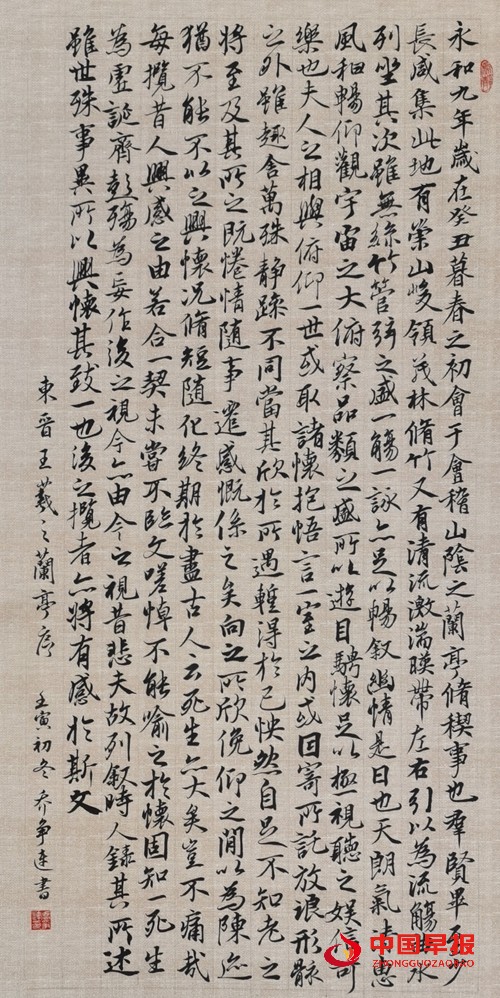 永和九年歲在癸丑暮春之初會于會稽山陰之蘭亭脩稧事也羣賢畢至少
長咸集此地有崇山峻領茂林脩竹又有清流激湍暎帶左右引以為流觴曲水
列坐其次雖無絲竹管弦之盛一觴一詠亦足以暢叙幽情是日也天朗氣清惠
風和暢仰觀宇宙之大俯察品類之盛所以遊目騁懷足以極視聽之娱信可
樂也夫人之相與俯仰一世或取諸懷抱悟言一室之内或因寄所託放浪形骸
之外雖趣舍萬殊静躁不同當其欣於所遇蹔得於己怏然自足不知老之
將至及其所之既惓情隨事遷感慨係之矣向之所欣俛仰之閒以為陳迹
猶不能不以之興懷況脩短隨化終期於盡古人云死生亦大矣豈不痛哉
每攬昔人興感之由若合一契未嘗不臨文嗟悼不能喻之於懷固知一死生
為虛誕齊彭殤為妄作後之視今亦由今之視昔悲夫故列叙時人錄其所述
雖世殊事異所以興懷其致一也後之攬者亦將有感於斯文
東晉王羲之蘭亭序 壬寅初冬 乔争连書
中国早报
ZHONGGUOZAOBAO